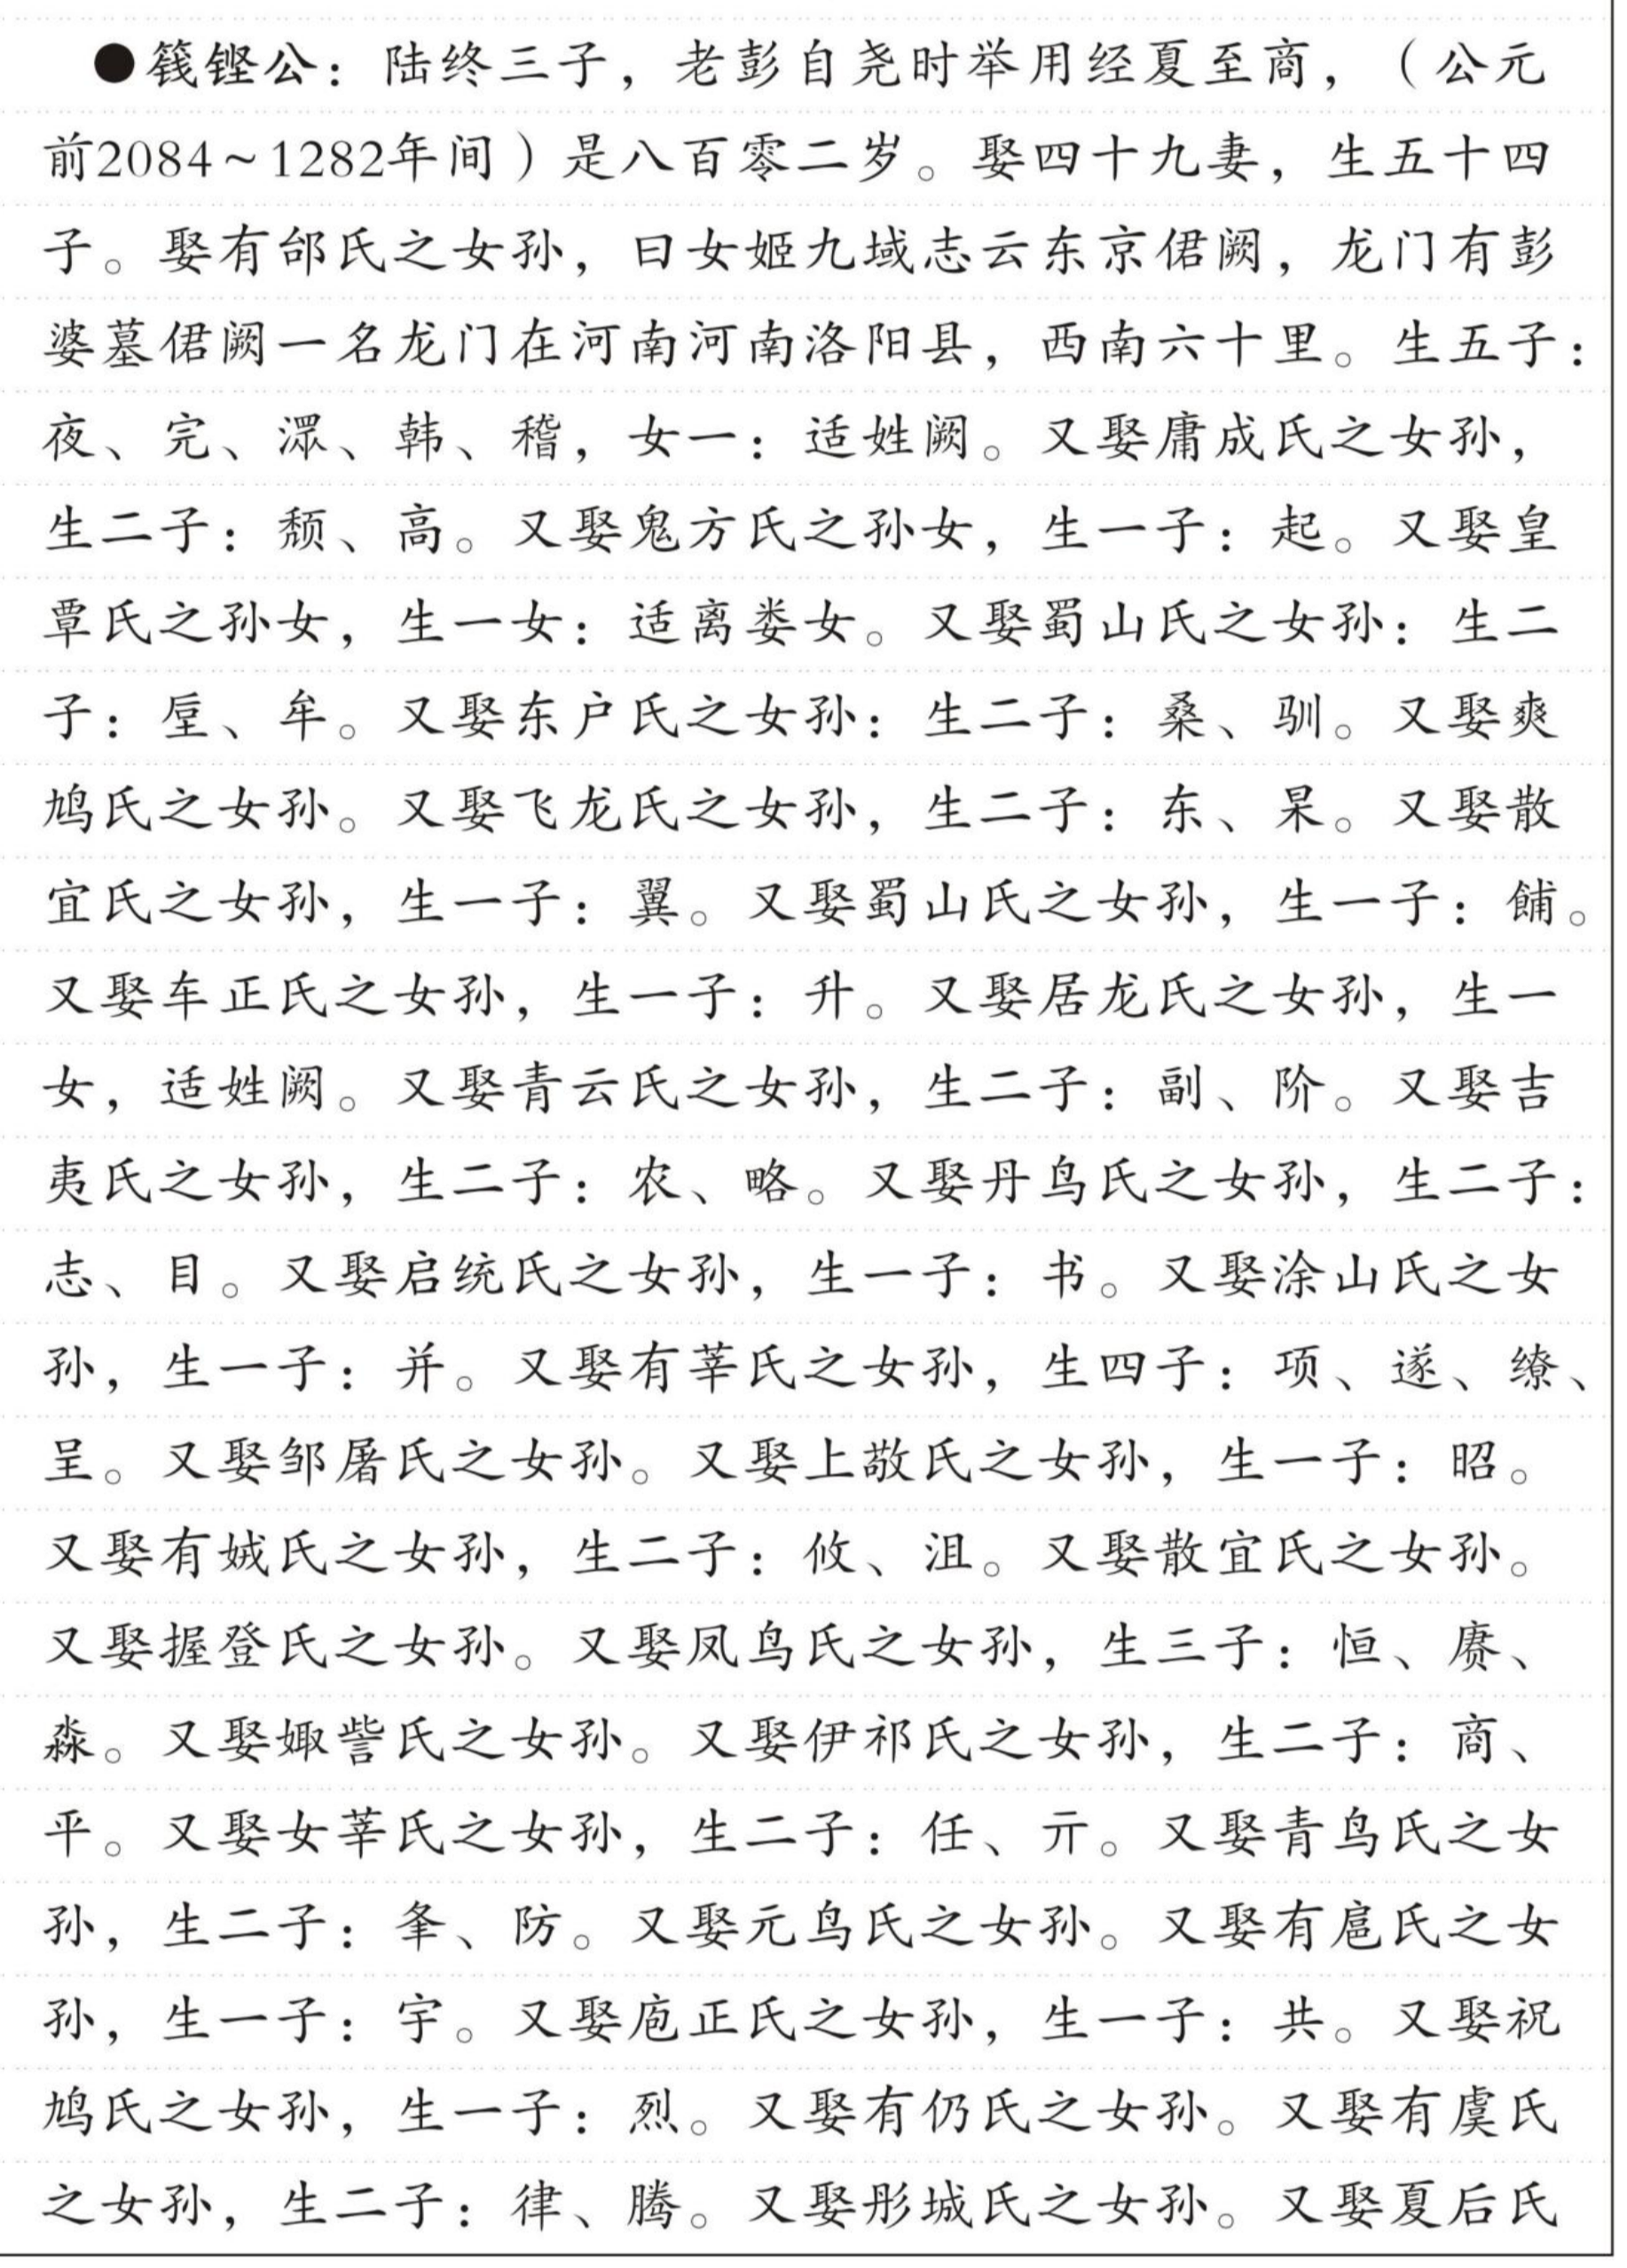 ●篯铿公：陆终三子，老彭自尧时举用经夏至商，（公元
前2084~1282年间）是八百零二岁。娶四十九妻，生五十四
子。娶有邰氏之女孙，曰女姬九域志云东京侰阙，龙门有彭
婆墓侰阙一名龙门在河南河南洛阳县，西南六十里。生五子：
夜、完、瀎、韩、稽，女一：适姓阙。又娶庸成氏之女孙，
生二子：颓、高。又娶鬼方氏之孙女，生一子：起。又娶皇
覃氏之孙女，生一女：适离娄女。又娶蜀山氏之女孙：生二
子：垕、牟。又娶东户氏之女孙：生二子：桑、驯。又娶爽
鸠氏之女孙。又娶飞龙氏之女孙，生二子：东、杲。又娶散
宜氏之女孙，生一子：翼。又娶蜀山氏之女孙，生一子：餔。
又娶车正氏之女孙，生一子：升。又娶居龙氏之女孙，生一
女，适姓阙。又娶青云氏之女孙，生二子：副、阶。又娶吉
夷氏之女孙，生二子：农、略。又娶丹鸟氏之女孙，生二子：
志、目。又娶启统氏之女孙，生一子：书。又娶涂山氏之女
孙，生一子：并。又娶有莘氏之女孙，生四子：项、遂、缭、
呈。又娶邹屠氏之女孙。又娶上敬氏之女孙，生一子：昭。
又娶有娀氏之女孙，生二子：攸、沮。又娶散宜氏之女孙。
又娶握登氏之女孙。又娶凤鸟氏之女孙，生三子：恒、赓、
淼。又娶娵訾氏之女孙。又娶伊祁氏之女孙，生二子：商、
平。又娶女莘氏之女孙，生二子：任、亓。又娶青鸟氏之女
孙，生二子：夆、防。又娶元鸟氏之女孙。又娶有扈氏之女
孙，生一子：宇。又娶庖正氏之女孙，生一子：共。又娶祝
鸠氏之女孙，生一子：烈。又娶有仍氏之女孙。又娶有虞氏
之女孙，生二子：律、腾。又娶彤城氏之女孙。又娶夏后氏